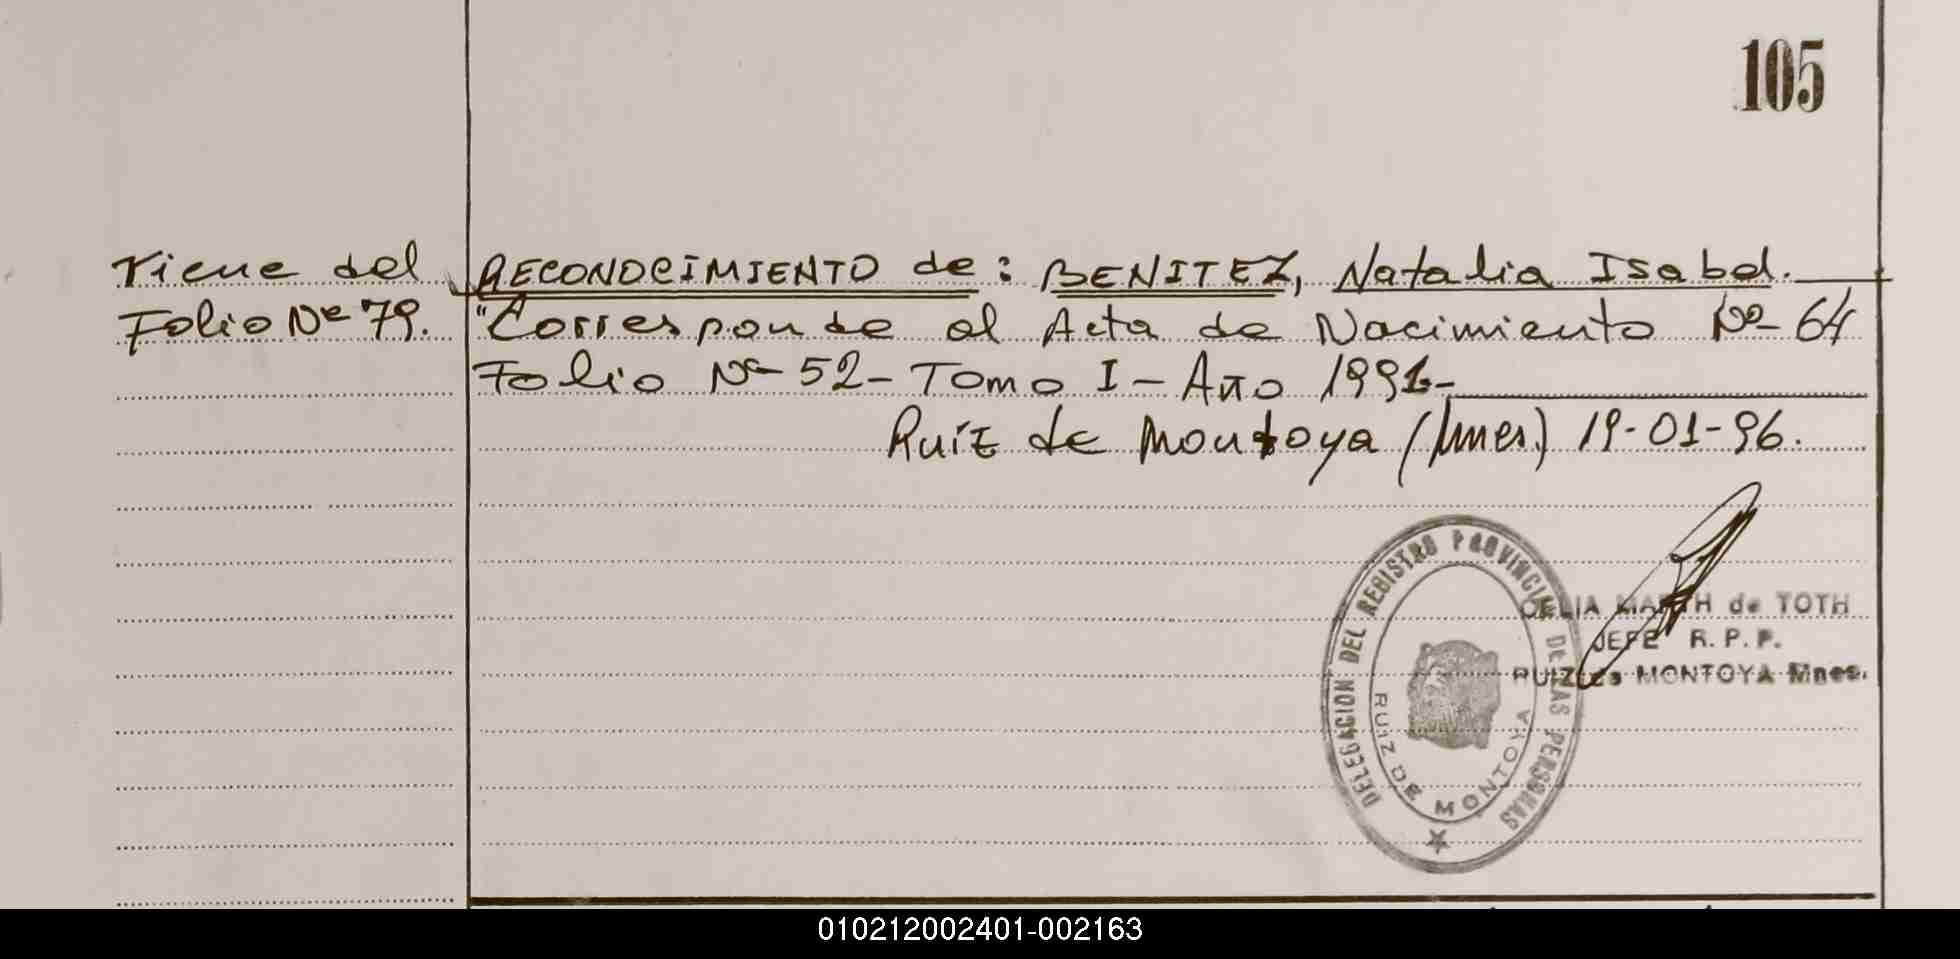 105
Viene del
Folio Nº 79.
RECONOCIMIENTO de: BENITEZ, Natalia Isabel.
"Corresponde al Acta de Nacimiento Nº- 64
Folio Nº- 52- Tomo I- Año 1991-
Ruíz de Montoya (Mnes.) 19-01-96.
DELEGACION DEL REGISTRO PROVINCIAL DE LAS PERSONAS
RUIZ DE MONTOYA
de TOTH
JEFE R.P.P.
RUIZ de MONTOYA Mnes.
010212002401-002163